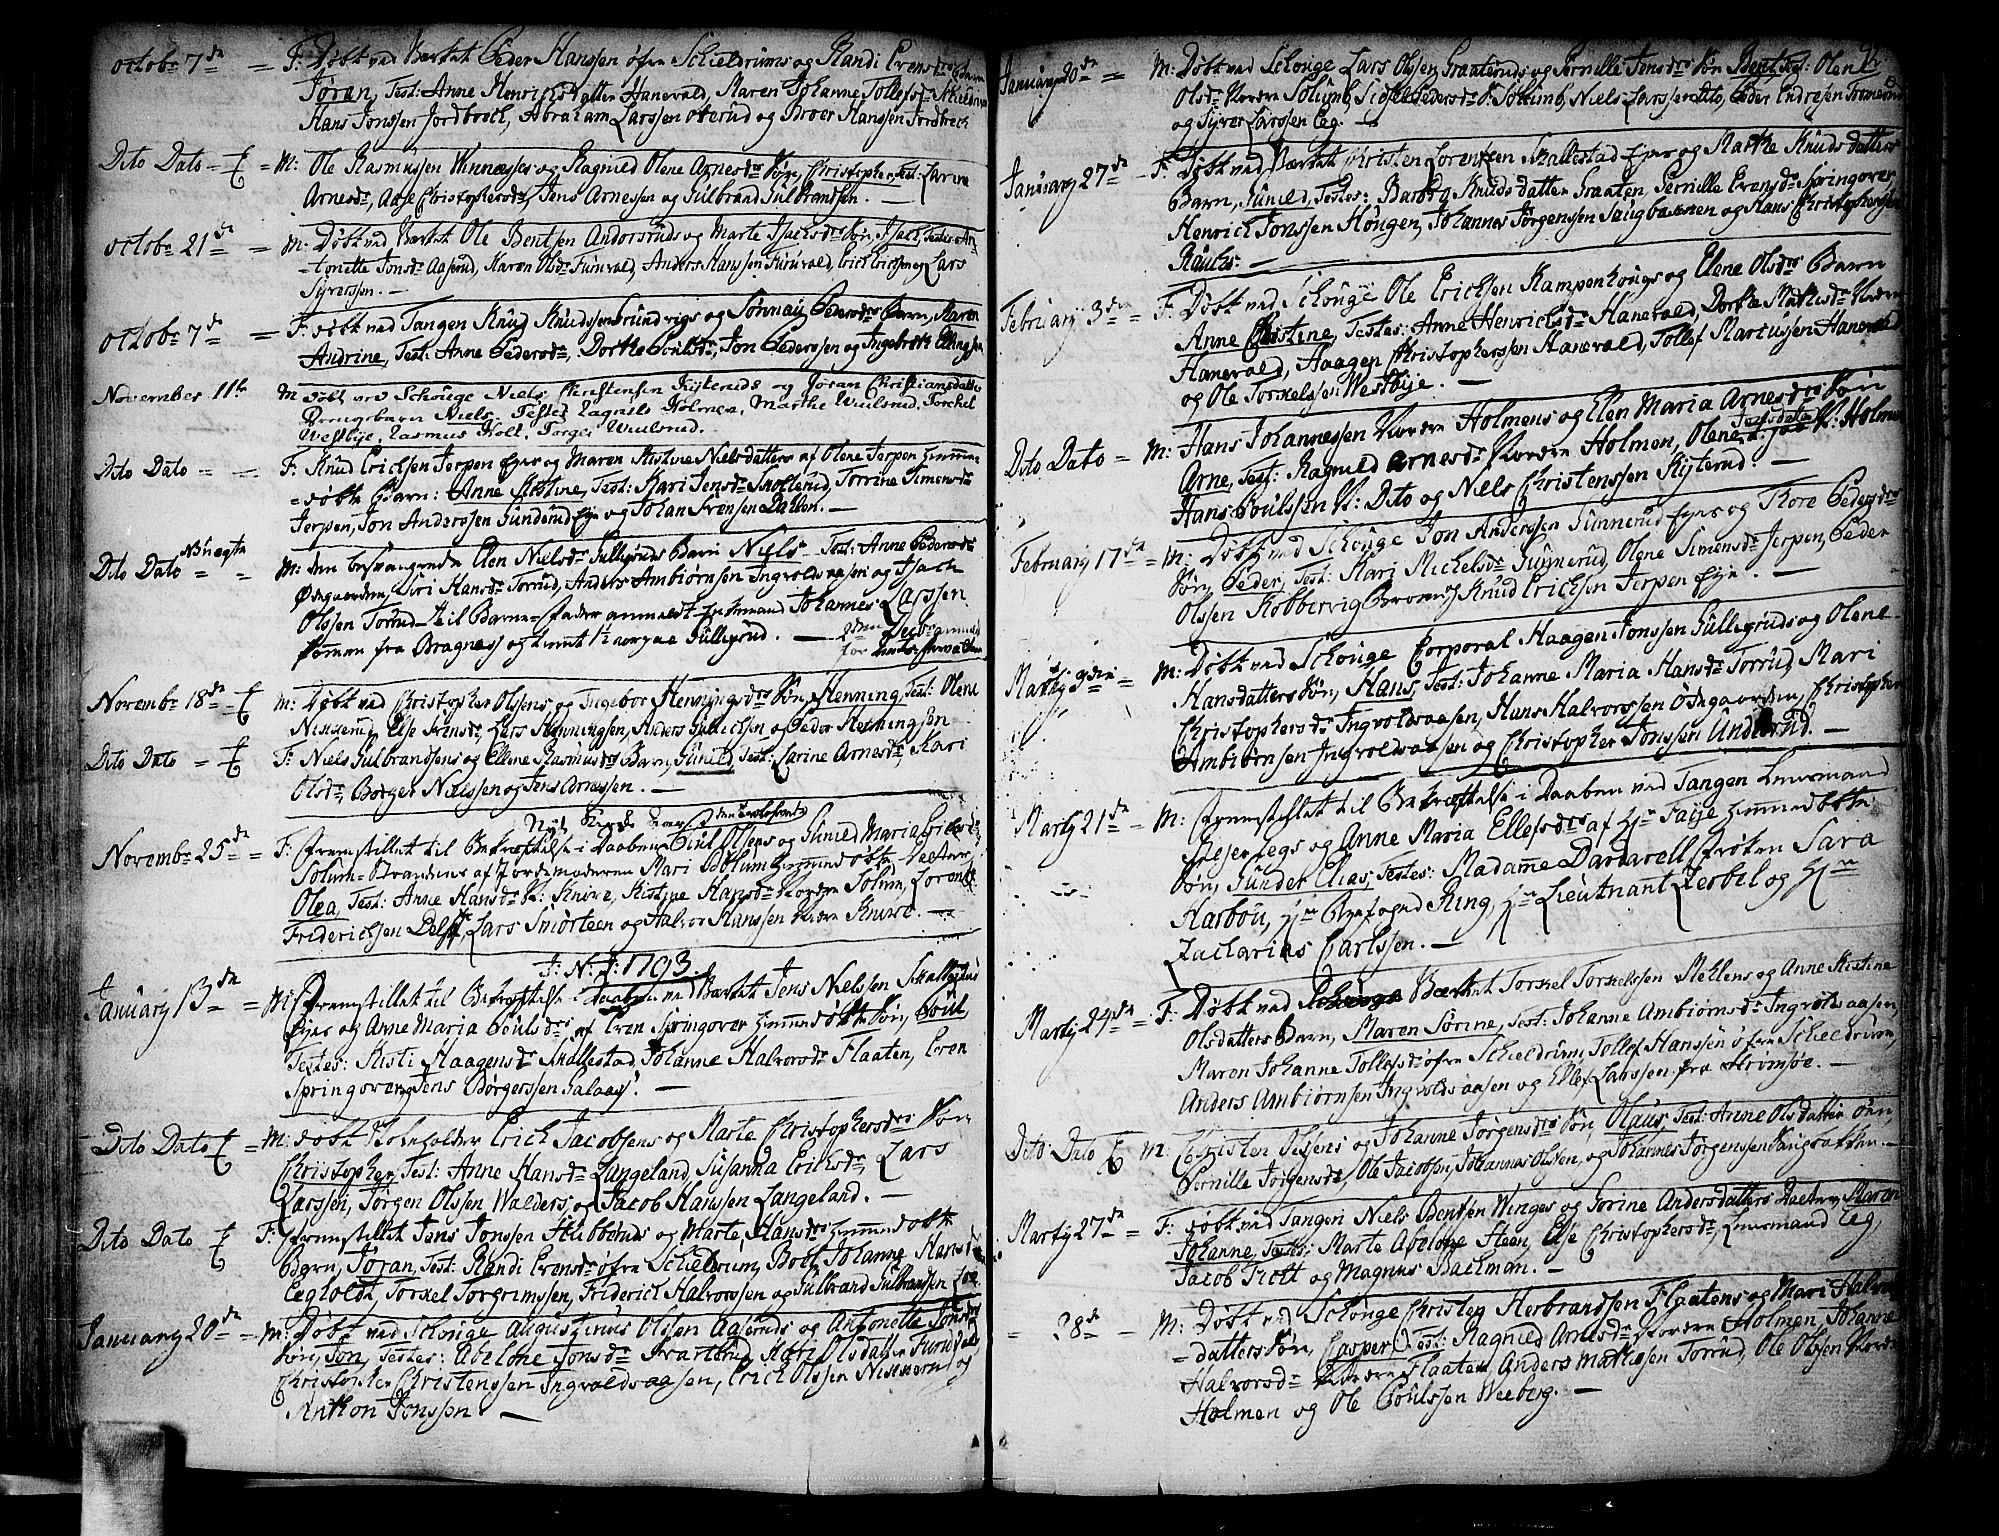 octobr 7de = F: Døbt ved Værket Peder Hanssen øfre Schieldrums og Randi Evensdrs Barn
Jøran, Test: Anne Henrichsdatter Hanevald, Maren Johanne Tollefsdr
Hans Jonssen Jordbrech, Abraham Larssen og Broer Hanssen Jordbrech
Dito Dato = M: Ole Rasmussen og Ragnild Olene Arnesdrs Søn, Christopher, Test: Larine
Arnesdr, Aase Christophersdr, Jens Arnessen og Gulbrand Gulbrandsen. —
octobr 21de = M: Døbt ved Værket Ole Bentsen Andorsruds og Marte Isachsdrs Søn, Isach, Testes: An-
tonette Jonsdr Aaserud, Karen Olsdr Furuvald, Anders Hanssen Furuvald, Erich Erichsen og Lars
Syverssen. —
octobr 7de = F: døbt ved Tangen Knud Knudssen Grundvigs og Pedersdrs Barn, Maren
Andrine, Test: Anne Pedersdr, Dorthe Poulsdr, Jon Pederssen og Ingebreth Ellingsen
November 11te M døbt ved Schouge Niels Christensen Kisteruds og Jøran Christiansdatters
Drengebarn Niels, Testes Ragnild Holmen, Marthe Wiulsrud, Torchel
Westbye, Rasmus Holt, Torger Wiulsrud.
Dito Dato — F: Knud Erichsen Jerpen Eyes og Maren Kistine Nielsdatters af Olene Jerpen hiemme
døbte Barn: Anne Kistine, Test: Mari Jensdr, Torrine Simensdr
Jerpen, Jon Anderssen Gunderud Eye og Johan Svensen Dallen. —
Dito Dato = NB uægte M: den besvangrede Elen Nielsdr Gulligruds Barn Niels — Test: Anne Pedersdr
Ødegaarden, Siri Hansdr Torrud, Anders Ambiørnsen Ingvoldsaasen og Isach
Olssen Torrud — til Barne-fader anmeldt Johannes Larssen
kommen fra Bragnæss og tient 1½ aar paa Gulligrud. —
Novembr 18de M: Døbt ved Christopher Olssens og Ingebor Henningsdrs Søn, Henning, Test: Olene
Nisserud, Else Svensdr, Lars Henningsen, Anders Gullichsen og Peder Henningsen
Dito Dato = F: Niels Gulbrandsens og Ellene Rasmusdrs Barn, Gunild, Test: Larine Arnesdr, Kari
Olsdr, Borger Nielssen og Jens Arnessen. —
Novembr 25de = F: Fremstillet til Bekræftelse i Daaben Poul Olsens og Gunild Maria
Solum-Strandens af Jordemoderen Mari Solum hiemmedøbte Datter
Olea, Test: Anne Hansdr N: Knive, Kistine Hansdr Nordre Solum, Lorentz
Friderichsen Delff, Lars Smørsteen og Halvor Hanssen Nordre Knive. —
F: N: I: 1793.
January 13de = M: Fremstillet til Bekræftelse i Daaben ved Værket Jens Nielssen Skallestad
Eyes og Anne Maria Poulsdrs af Even Springover hiemmedøbte Søn, Poul,
Testes: Kisti Haagensdr Skallestad, Johanne Halvorsdr Flaaten, Even
Springover og Jens Børgerssen Galaas. —
Dito Dato = M: døbt Erich Jacobsens og Marte Christophersdrs Søn
Christopher, Test: Anne Hansdr Langeland, Susanna Erichsdr, Lars
Larssen, Jørgen Olssen Walders, og Jacob Hanssen Langeland. —
Dito Dato F: Fremstillet Jens Jonssen Hubberuds og Marte Hansdrs hiemmedøbte
Barn, Jøran, Test: Randi Evensdr øfre Schieldrum, Johanne Hansdr
Eegholdt, Torkel Torgrimssen, Friderich Halvorssen og Gulbrand Gulbrandssen
January 20de = M: Døbt ved Schouge Augustinus Olssen Aaseruds og Antonette Jonsdrs
Søn, Jon, Testes: Abelone Jonsdr Svartsrud, Kari Olsdatter Furuvald
Christopher Christenssen Ingvoldsaasen, Erich Olssen Nisserud og
Anthon Jonssen. —
January 20de = M: Døbt ved Schouge Lars Olssen Graateruds og Pernille Jonsdrs Søn Bent, Test: Olene
Olsdr Nordre Solumb, Sidsel Pedersdr S. Sollumb, Niels Larssen Dito, Peder Endresen
og Syver Larssen Eeg. —
January 27de — F: Døbt ved Værket Christen Lorentzen Skallestad Eyes og Marthe Knuds datters
Barn, Gunild, Testes: Barbra Knudsdatter Graaten, Pernille Evensdr Springover
Henrich Jonssen Hougen, Johannes Jørgenssen Saugbakken og Hans Christophersen
February 3de = F: Døbt ved Schouge Ole Erichsen Kampenhougs og Elene Olsdrs Barn
Anne Christine, Testes: Anne Henrichsdr Hanevald, Dorthe Mathisdr Nordre
Hanevald, Haagen Christopherssen Hanevald, Tollef Marcussen Hanevald
og Ole Torkelssen Westbye. —
Dito Dato = M: Hans Johannessen Nordre Holmens og Elen Maria Arnesdrs Søn
Arne, Test: Ragnild Arnesdr Nordre Holmen, Olene N: Holmen
Hans Poulssen N: Dito og Niels Christenssen Kisterud. —
February 17de = M: Døbt ved Schouge Jon Anderssen Gunnerud Eyes og Thore Pedersdrs
Søn, Peder, Test: Mari Michelsdr Gunnerud, Olene Simensdr Jerpen, Peder
Olssen Kobbervig Broen og Knud Erichsen Jerpen Eye. —
Martj 3die = M: Døbt ved Schouge Corporal Haagen Jonssen Gulligruds og Olene
Hansdatters Søn, Hans, Test: Johanne Maria Hansdr Torrud, Mari
Christophersdr Ingvoldsaasen, Hans Halvorssen Ødegaarden, Christopher
Ambiørnsen Ingvoldsaasen og Christopher Jonssen Underud. —
Martj 21de — M: Fremstillet til Bekræftelse i Daaben ved Tangen Leuermand
Pejer Eegs og Anne Maria Ellefsdrs af Hr Faije hiemmedøbte
Søn, Gunder Elias, Testes: Madame Dardarell, frøken Sara
Harbou, Hr Byefoged Ring, Hr Lieutnant Zerbel og Hr
Zacharias Carlssen. —
Martj 24de = F: Døbt ved Værket Torkel Torkelssen Mehlens og Anne Kistine
Olsdatters Barn, Maren Sørine, Test: Johanne Ambiørnsdr Ingvoldsaasen,
Maren Johanne Tollefsdr øfre Schieldrum, Tollef Hanssen øfre Schieldrum,
Anders Ambiørnsen Ingvoldsaasen og Ellef Larssen fra Strømsøe. —
Dito Dato M: Christen Olssens og Johanne Jørgensdrs Søn, Olaus, Test: Anne Olsdatter
Pernille Jørgensdr, Ole Jacobsen, Johannes Olssen, og Johannes Jørgenssen Saugbakken. —
Martj 27de = F: døbt ved Tangen Niels Bentsen Winges og Gorine Andersdatters Datter, Maren
Johanne, Testes: Marte Abelone Steen, Else Christophersdr, Leuermand Eeg,
Jacob Trott og Magnus Bachman. —
— 28de — M: Døbt ved Schouge Christen Herbrandssen Flaatens og Mari Halvors-
datters Søn, Casper, Test: Ragnild Arnesdr Nordre Holmen, Johanne
Halvorsdr Nordre Flaaten, Anders Mathisen Torrud, Ole Olssen Nordre
Holmen og Ole Poulssen Weeberg. —